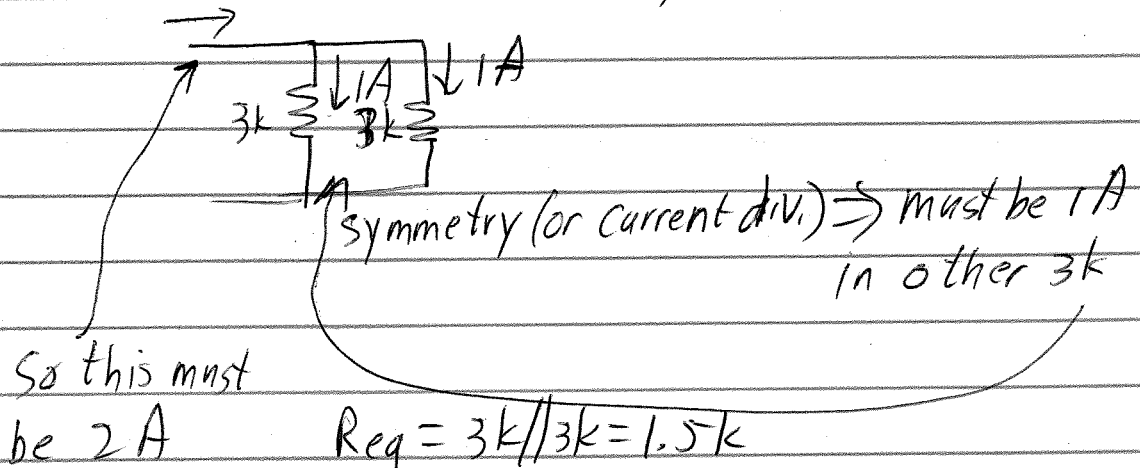 1A 1A
3k 3k
symmetry (or current div.) ⇒ must be 1A
in other 3k
So this must
be 2A Req = 3k//3k = 1.5k